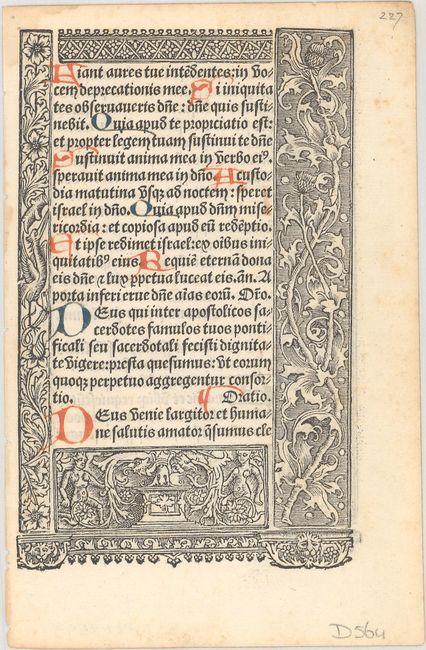 227
Fiant aures tue intēdentes: in vo-
cem deprecationis mee. Si iniquita
tes obseruaueris dn̄e: dn̄e quis susti-
nebit. Quia apud te propiciatio est:
et propter legem tuam sustinui te dn̄e
Sustinuit anima mea in verbo eiꝰ.
sperauit anima mea in dn̄o. A custo-
dia matutina vsq; ad noctem: speret
israel in dn̄o. Quia apud dn̄m mise-
ricordia: et copiosa apud eū redēptio.
Et ipse redimet israel: ex oībus ini-
quitatibꝰ eius Requiē eternā dona
eis dn̄e & lux ꝑpetua luceat eis. an̄. A
porta inferi erue dn̄e aīas eorū. Or̄o.
DEus qui inter apostolicos sa-
cerdotes famulos tuos ponti-
ficali seu sacerdotali fecisti dignita-
te vigere: presta quesumus: vt eorum
quoqꝫ perpetuo aggregentur consor-
tio. Oratio.
DEus venie largitor et huma-
ne salutis amator q̄sumus cle
D564